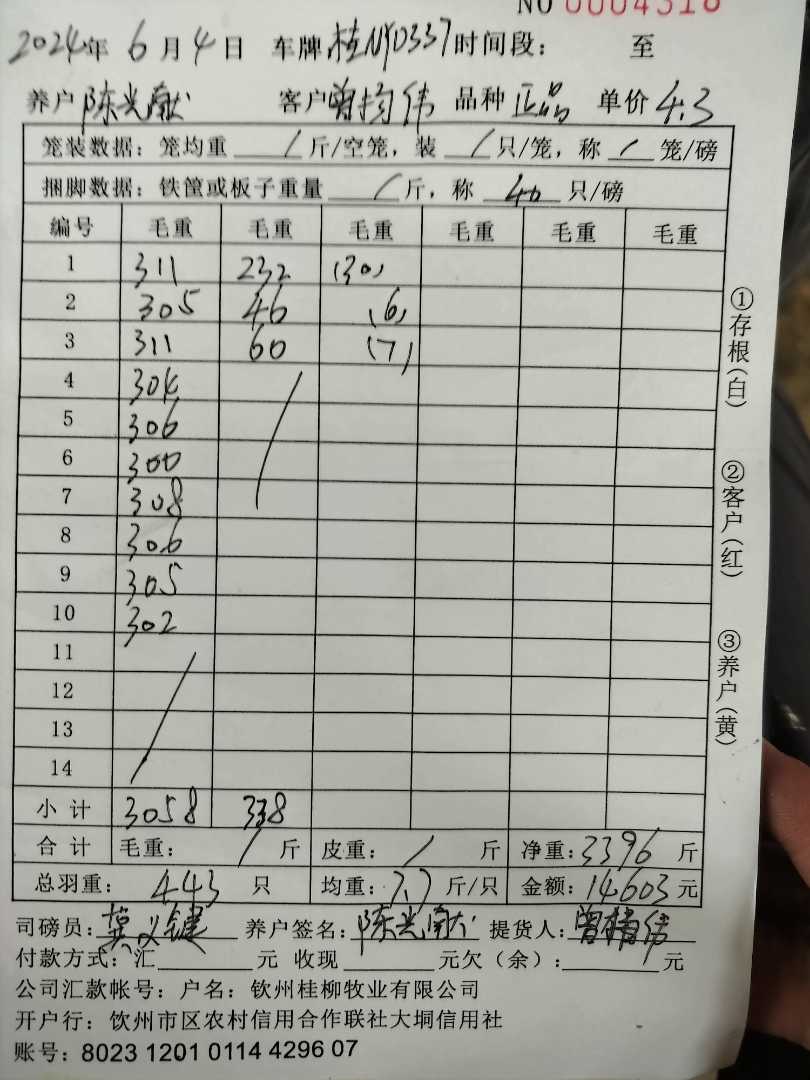 NO 0004318
2024年 6月4日 车牌 桂NYD337 时间段: 至
养户 陈光献 客户 曾楠伟 品种 正品 单价 4.3
笼装数据: 笼均重 / 斤/空笼, 装 / 只/笼, 称 / 笼/磅
捆脚数据: 铁筐或板子重量 / 斤, 称 40 只/磅
编号 毛重 毛重 毛重 毛重 毛重 毛重
1 311 232 (30)
2 305 46 (6)
3 311 60 (7)
4 304 /
5 306
6 300
7 308
8 306
9 305
10 302
11 /
12
13
14
小计 3058 338
合计 毛重: / 斤 皮重: / 斤 净重: 3396 斤
总羽重: 443 只 均重: 7.7 斤/只 金额: 14603 元
司磅员: 莫义键 养户签名: 陈光献 提货人: 曾楠伟
付款方式: 汇 元 收现 元欠(余): 元
公司汇款帐号: 户名: 钦州桂柳牧业有限公司
开户行: 钦州市区农村信用合作联社大垌信用社
账号: 8023 1201 0114 4296 07
①存根(白)
②客户(红)
③养户(黄)